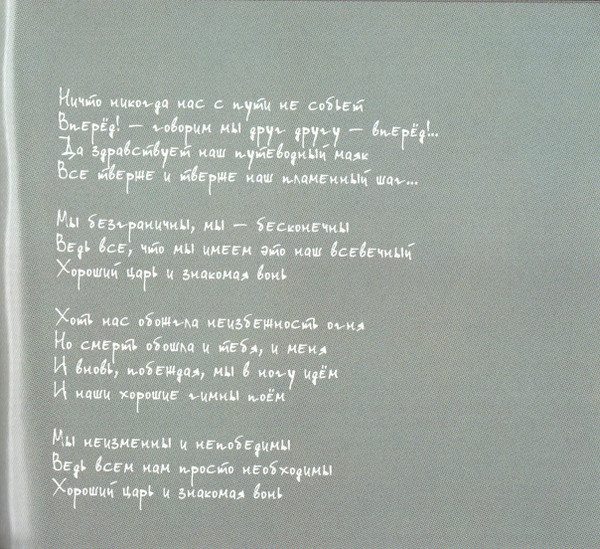 Ничто никогда нас с пути не собьет
Вперёд! — говорим мы друг другу — вперёд!..
Да здравствует наш путеводный маяк
Все тверже и тверже наш пламенный шаг...
Мы безграничны, мы — бесконечны
Ведь все, что мы имеем это наш всевечный
Хороший царь и знакомая вонь
Хоть нас обожгла неизбежность огня
Но смерть обошла и тебя, и меня
И вновь, побеждая, мы в ногу идём
И наши хорошие гимны поём
Мы неизменны и непобедимы
Ведь всем нам просто необходимы
Хороший царь и знакомая вонь